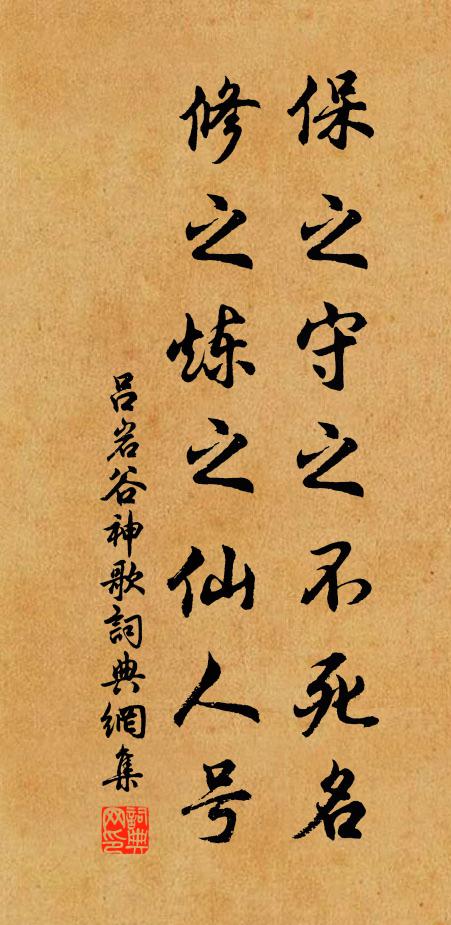 保之守之不死名
修之炼之仙人号
吕岩谷神歌詞典網集
詞典网印